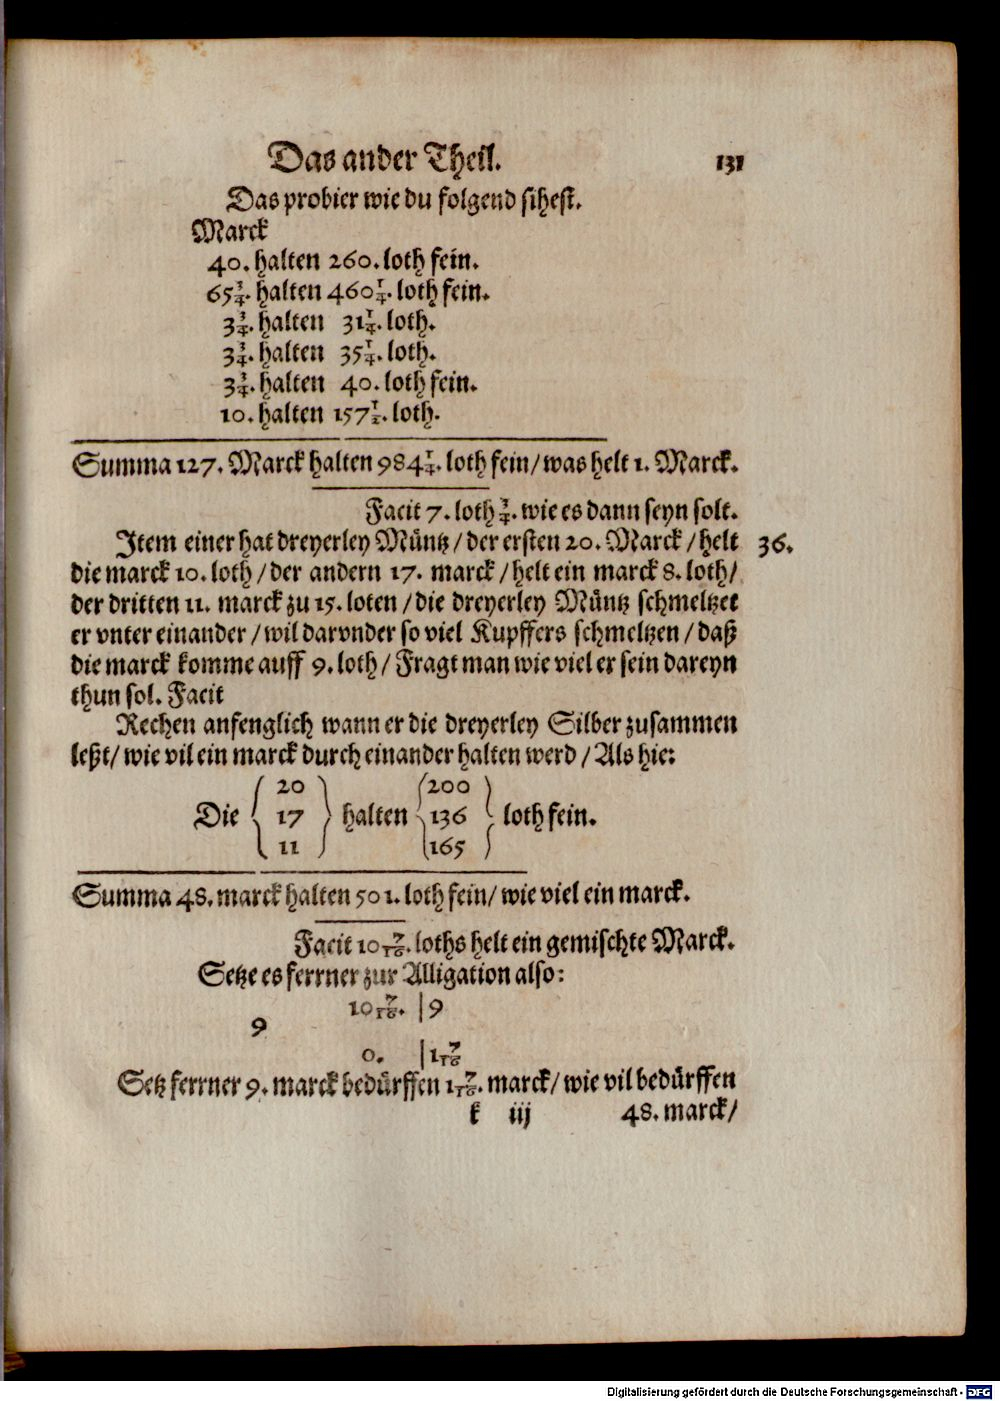 Das ander Theil. 131
Das probier wie du folgend sihest.
Marck
40. halten 260. loth fein.
65 3/4. halten 460 1/4. loth fein.
3 3/4. halten 31 1/4. loth.
3 3/4. halten 35 1/4. loth.
3 3/4. halten 40. loth fein.
10. halten 157 1/2. loth.
Summa 127. Marck halten 984 1/4. loth fein/ was helt 1. Marck.
Facit 7. loth 3/4. wie es dann seyn solt.
Item einer hat dreyerley Müntz/ der ersten 20. Marck/ helt 36.
die marck 10. loth/ der andern 17. marck/ helt ein marck 8. loth/
der dritten 11. marck zu 15. loten/ die dreyerley Müntz schmeltzet
er vnter einander/ wil darvnder so viel Kupffers schmeltzen/ daß
die marck komme auff 9. loth/ Fragt man wie viel er sein dareyn
thun sol. Facit
Rechen anfenglich wann er die dreyerley Silber zusammen
leßt/ wie vil ein marck durch einander halten werd/ Als hie:
20 200
Die 17 halten 136 loth fein.
11 165
Summa 48. marck halten 501. loth fein/ wie viel ein marck.
Facit 10 7/16. loths helt ein gemischte Marck.
Setze es ferrner zur Alligation also:
10 7/16. | 9
9
0. | 1 7/16
Setz ferrner 9. marck bedürffen 1 7/16. marck/ wie vil bedürffen
k iij 48. marck/
Digitalisierung gefördert durch die Deutsche Forschungsgemeinschaft - DFG